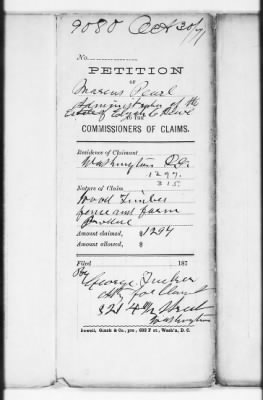 9080 Oct 30/7
No.
PETITION
OF
Marcus Pearl
Administrator of the
Estate of
TO THE
COMMISSIONERS OF CLAIMS.
Residence of Claimant
Washington D.C.
1297.
315.
Nature of Claim
Wood Timber
fence and farm
produce
Amount claimed, $1297
Amount allowed, $
Filed 187
By
George Tucker
Atty for Claimt
321 4½ Street
Washington
Powell, Ginck & Co., prs., 632 F st., Wash'n, D. C.